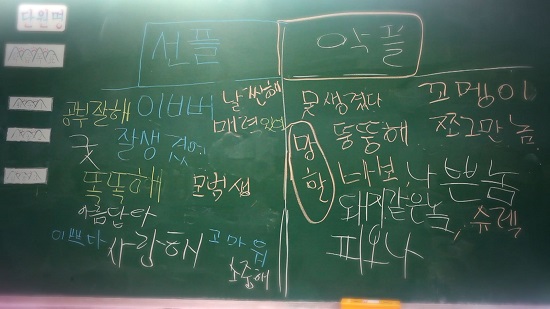 단원명
선플
공부잘해 이뻐 날씬해
매력있다
굿 잘생겼어
똑똑해 모범생
아름답다
이쁘다 사랑해 고마워
소중해
악플
못생겼다 꼬멩이
뚱뚱해 쪼그만놈
망할 바보, 나쁜놈
돼지같은놈, 슈렉
피오나